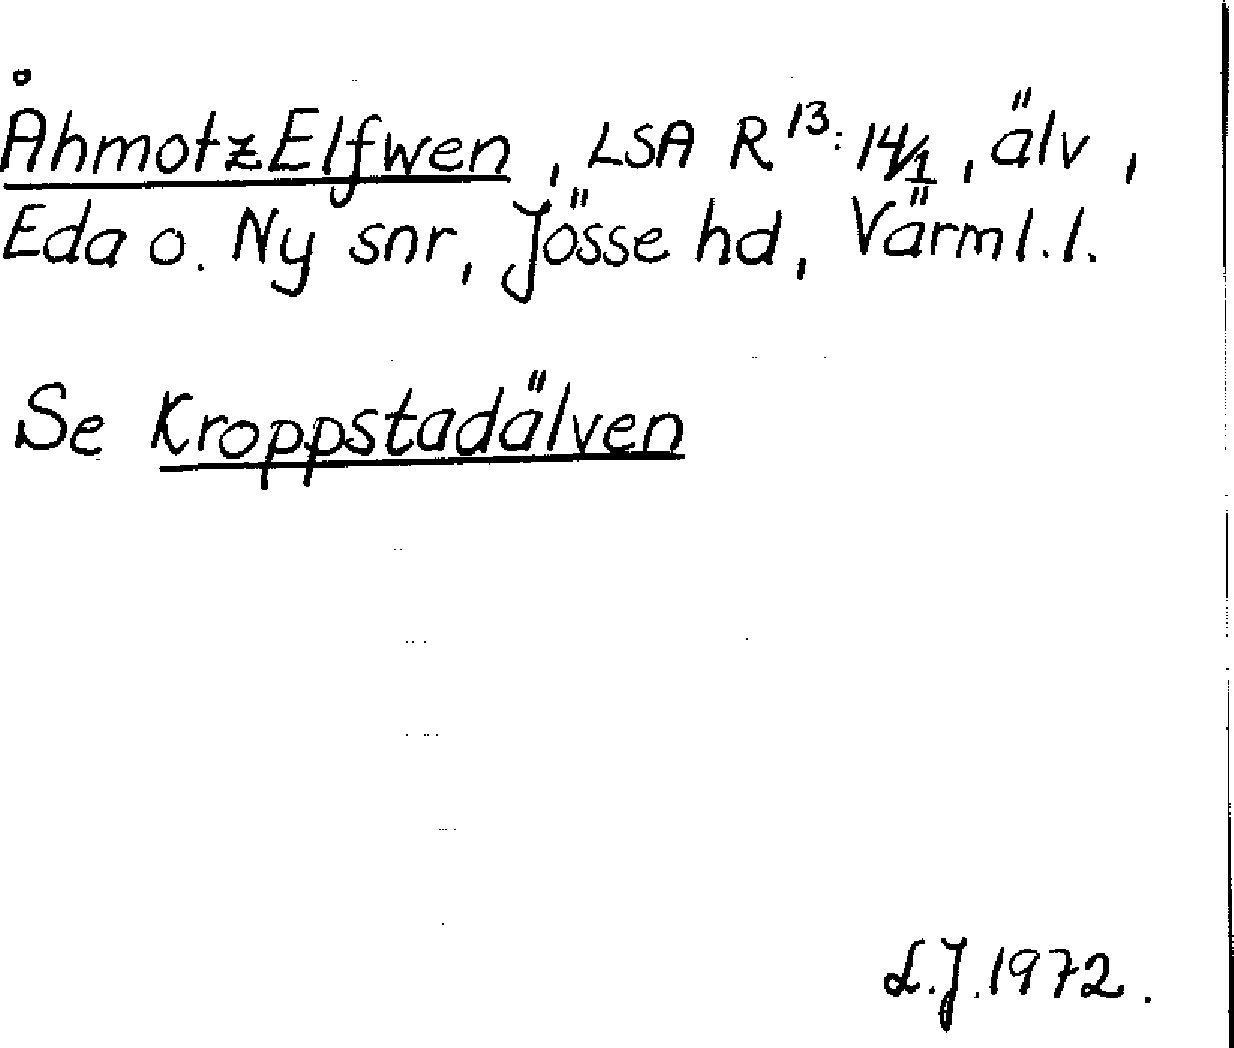 ÅhmotzElfwen, LSA R¹³: 14/1, älv,
Eda o. Ny snr, Jösse hd, Värml. l.
Se Kroppstadälven
L.J. 1972.